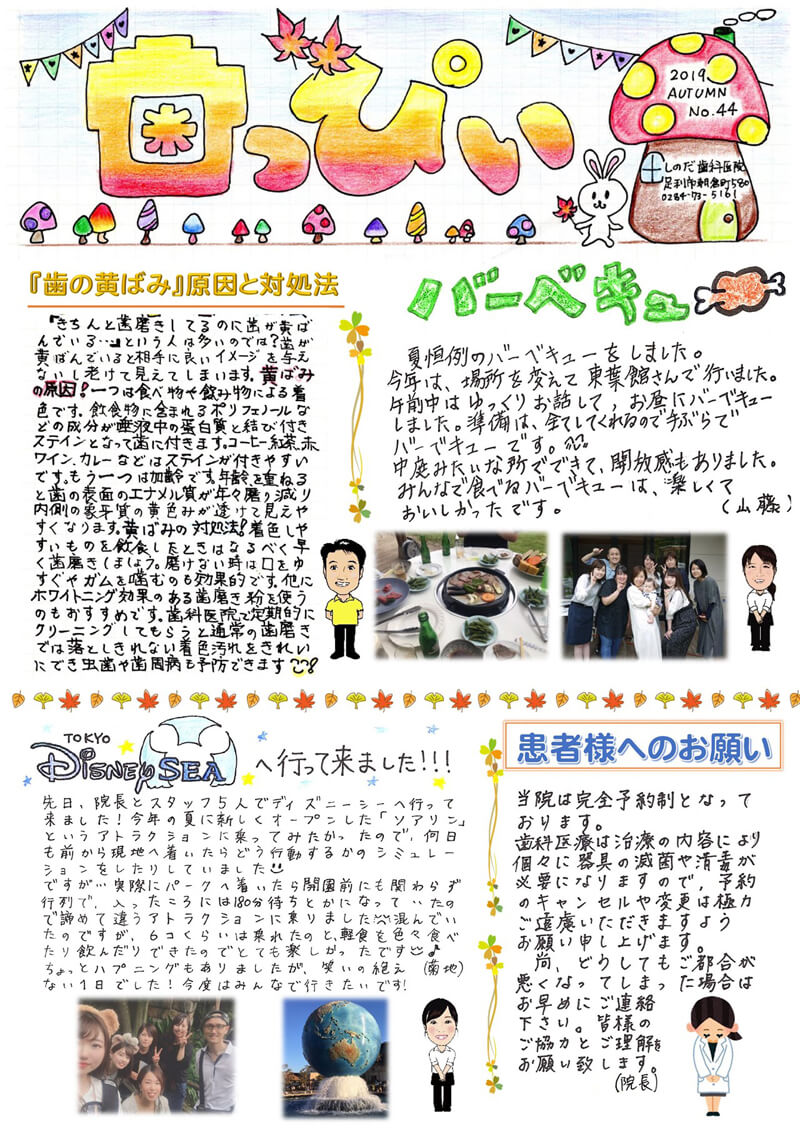 歯っぴぃ
2019
AUTUMN
No.44
しのだ歯科医院
足利市朝倉町580
0284-73-5161
『歯の黄ばみ』原因と対処法
『きちんと歯磨きしてるのに歯が黄ば
んでいる…』という人は多いのでは?歯が
黄ばんでいると相手に良いイメージを与え
ないし老けて見えてしまいます。黄ばみ
の原因!一つは食べ物や飲み物による着
色です。飲食物に含まれるポリフェノールな
どの成分が唾液中の蛋白質と結び付き
ステインとなって歯に付きます。コーヒー、紅茶、赤
ワイン、カレーなどはステインが付きやすい
です。もう一つは加齢です。年齢を重ねる
と歯の表面のエナメル質が年々磨り減り
内側の象牙質の黄色みが透けて見えや
すくなります。黄ばみの対処法!着色しや
すいものを飲食したときはなるべく早
く歯磨きしましょう。磨けない時は口をゆ
すぐやガムを噛むのも効果的です。他に
ホワイトニング効果のある歯磨き粉を使う
のもおすすめです。歯科医院で定期的に
クリーニングしてもらうと通常の歯磨き
では落としきれない着色汚れをきれい
にでき虫歯や歯周病も予防できます!
バーベキュー
夏恒例のバーベキューをしました。
今年は、場所を変えて東葉館さんで行いました。
午前中はゆっくりお話して、お昼にバーベキュー
しました。準備は、全てしてくれるので手ぶらで
バーベキューです。
中庭みたいな所でできて、開放感もありました。
みんなで食べるバーベキューは、楽しくて
おいしかったです。 (山藤)
TOKYO
DISNEY SEA へ行って来ました!!!
先日、院長とスタッフ5人でディズニーシーへ行って
来ました!今年の夏に新しくオープンした「ソアリン」
というアトラクションに乗ってみたかったので、何日
も前から現地へ着いたらどう行動するかのシミュレー
ションをしたりしていました
ですが…実際にパークへ着いたら開園前にも関わらず
行列で、入ったころには180分待ちとかになっていたの
で諦めて違うアトラクションに乗りました 混んでい
たのですが、6コくらいは乗れたのと、軽食を色々食べ
たり飲んだりできたのでとても楽しかったです♪
ちょっとハプニングもありましたが、笑いの絶え (菊地)
ない1日でした!今度はみんなで行きたいです!
患者様へのお願い
当院は完全予約制となって
おります。
歯科医療は治療の内容により
個々に器具の滅菌や消毒が
必要になりますので、予約
のキャンセルや変更は極力
ご遠慮いただきますよう
お願い申し上げます。
尚、どうしてもご都合が
悪くなってしまった場合は
お早めにご連絡
下さい。皆様の
ご協力とご理解を
お願い致します。
(院長)